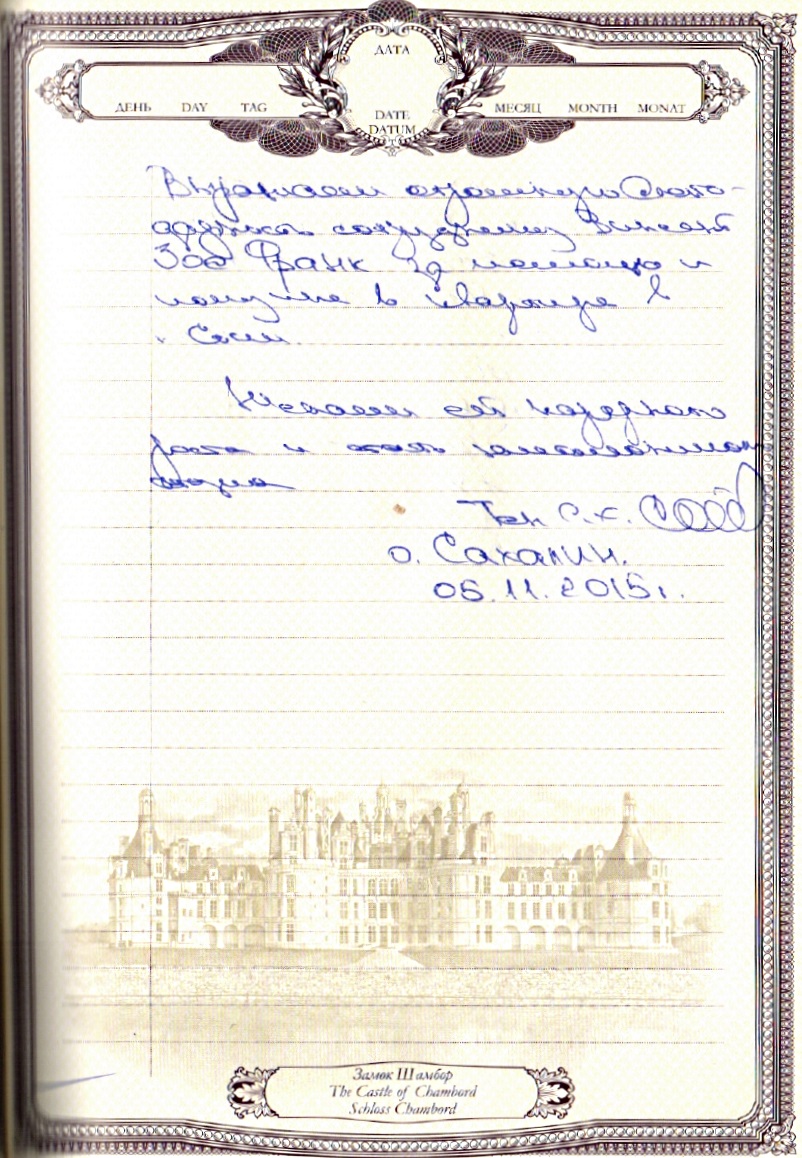 ДАТА
ДЕНЬ DAY TAG
DATE
DATUM
МЕСЯЦ MONTH MONAT
Выражаем огромную благо-
дарность сотруднику Винсент
Зое Франк за помощь и
в квартире в
Сочи
Желаем ей карьерного
роста и
Тен С.К.
о. Сахалин.
05.11.2015г.
Замок Шамбор
The Castle of Chambord
Schloss Chambord